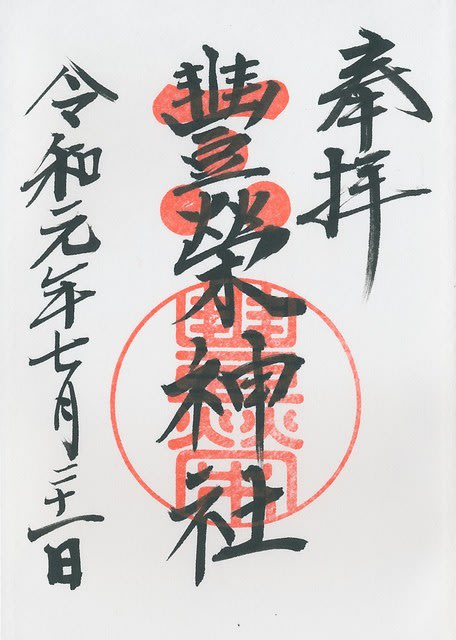 奉拝
豐榮神社
令和元年七月二十一日